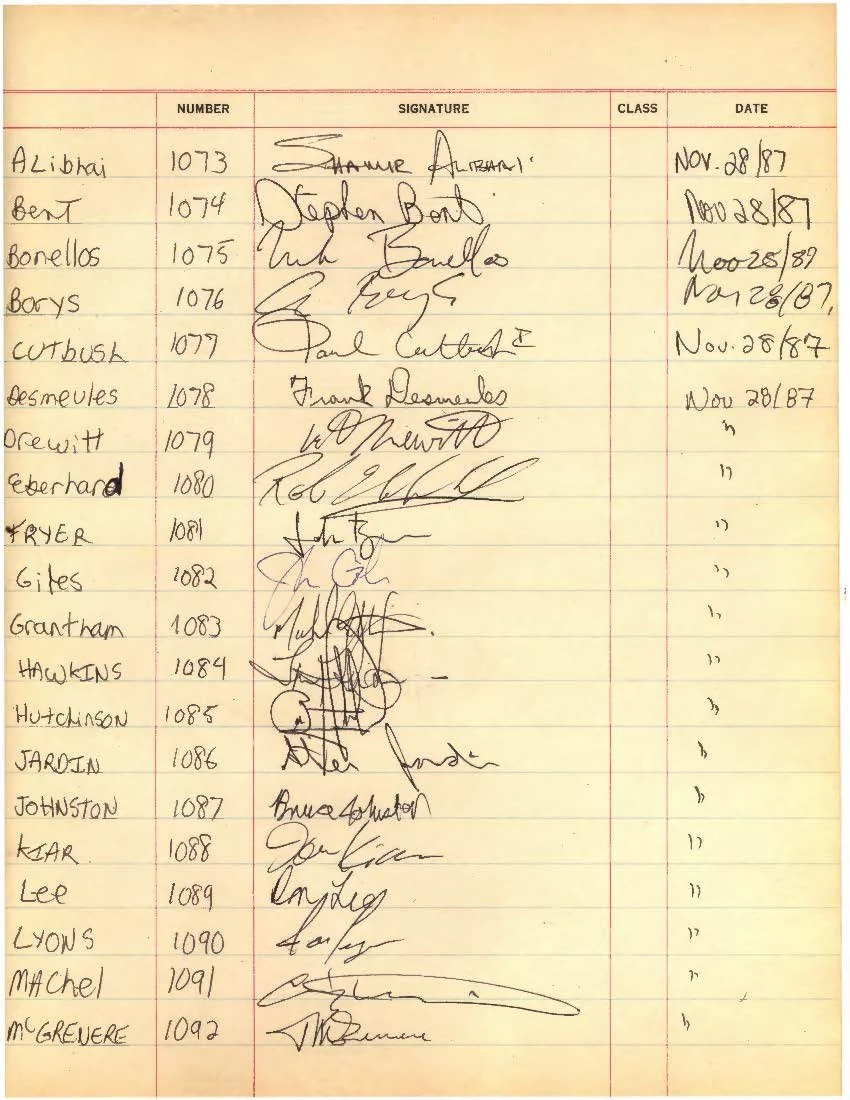 NUMBER SIGNATURE CLASS DATE
Alibhai 1073 Shamir Alibhai Nov. 28/87
Bent 1074 Stephen Bent Nov 28/87
Bonellos 1075 Bonellos Nov 28/87
Borys 1076 Borys Nov 28/87
Cutbush 1077 Paul Cutbush Nov. 28/87
Desmeules 1078 Frank Desmeules Nov 28/87
Drewitt 1079 Drewitt "
Eberhard 1080 Rob "
FRYER 1081 "
Giles 1082 "
Grantham 1083 "
HAWKINS 1084 "
Hutchinson 1085 "
JARDIN 1086 Jardin "
JOHNSTON 1087 Bruce Johnston "
KIAR 1088 Kiar "
Lee 1089 Lee "
LYONS 1090 "
MAChel 1091 "
McGRENERE 1092 "